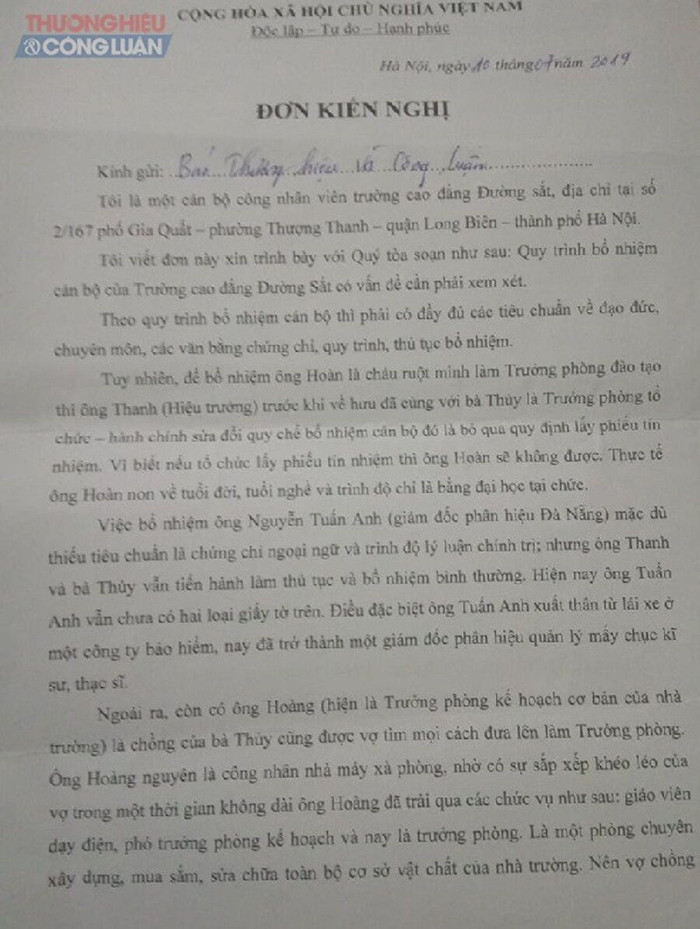 THƯƠNG HIỆU
& CÔNG LUẬN
CỘNG HÒA XÃ HỘI CHỦ NGHĨA VIỆT NAM
Độc lập – Tự do – Hạnh phúc
Hà Nội, ngày 10 tháng 07 năm 2019
ĐƠN KIẾN NGHỊ
Kính gửi: Báo Thương hiệu và Công Luận
Tôi là một cán bộ công nhân viên trường cao đẳng Đường sắt, địa chỉ tại số
2/167 phố Gia Quất – phường Thượng Thanh – quận Long Biên – thành phố Hà Nội.
Tôi viết đơn này xin trình bày với Quý tòa soạn như sau: Quy trình bổ nhiệm
cán bộ của Trường cao đẳng Đường Sắt có vấn đề cần phải xem xét.
Theo quy trình bổ nhiệm cán bộ thì phải có đầy đủ các tiêu chuẩn về đạo đức,
chuyên môn, các văn bằng chứng chỉ, quy trình, thủ tục bổ nhiệm.
Tuy nhiên, để bổ nhiệm ông Hoàn là cháu ruột mình làm Trưởng phòng đào tạo
thì ông Thanh (Hiệu trưởng) trước khi về hưu đã cùng với bà Thủy là Trưởng phòng tổ
chức – hành chính sửa đổi quy chế bổ nhiệm cán bộ đó là bỏ qua quy định lấy phiếu tín
nhiệm. Vì biết nếu tổ chức lấy phiếu tín nhiệm thì ông Hoàn sẽ không được. Thực tế
ông Hoàn non về tuổi đời, tuổi nghề và trình độ chỉ là bằng đại học tại chức.
Việc bổ nhiệm ông Nguyễn Tuấn Anh (giám đốc phân hiệu Đà Nẵng) mặc dù
thiếu tiêu chuẩn là chứng chỉ ngoại ngữ và trình độ lý luận chính trị; nhưng ông Thanh
và bà Thủy vẫn tiến hành làm thủ tục và bổ nhiệm bình thường. Hiện nay ông Tuấn
Anh vẫn chưa có hai loại giấy tờ trên. Điều đặc biệt ông Tuấn Anh xuất thân từ lái xe ở
một công ty bảo hiểm, nay đã trở thành một giám đốc phân hiệu quản lý mấy chục kĩ
sư, thạc sĩ.
Ngoài ra, còn có ông Hoàng (hiện là Trưởng phòng kế hoạch cơ bản của nhà
trường) là chồng của bà Thủy cũng được vợ tìm mọi cách đưa lên làm Trưởng phòng.
Ông Hoàng nguyên là công nhân nhà máy xà phòng, nhờ có sự sắp xếp khéo léo của
vợ trong một thời gian không dài ông Hoàng đã trải qua các chức vụ như sau: giáo viên
dạy điện, phó trưởng phòng kế hoạch và nay là trưởng phòng. Là một phòng chuyên
xây dựng, mua sắm, sửa chữa toàn bộ cơ sở vật chất của nhà trường. Nên vợ chồng